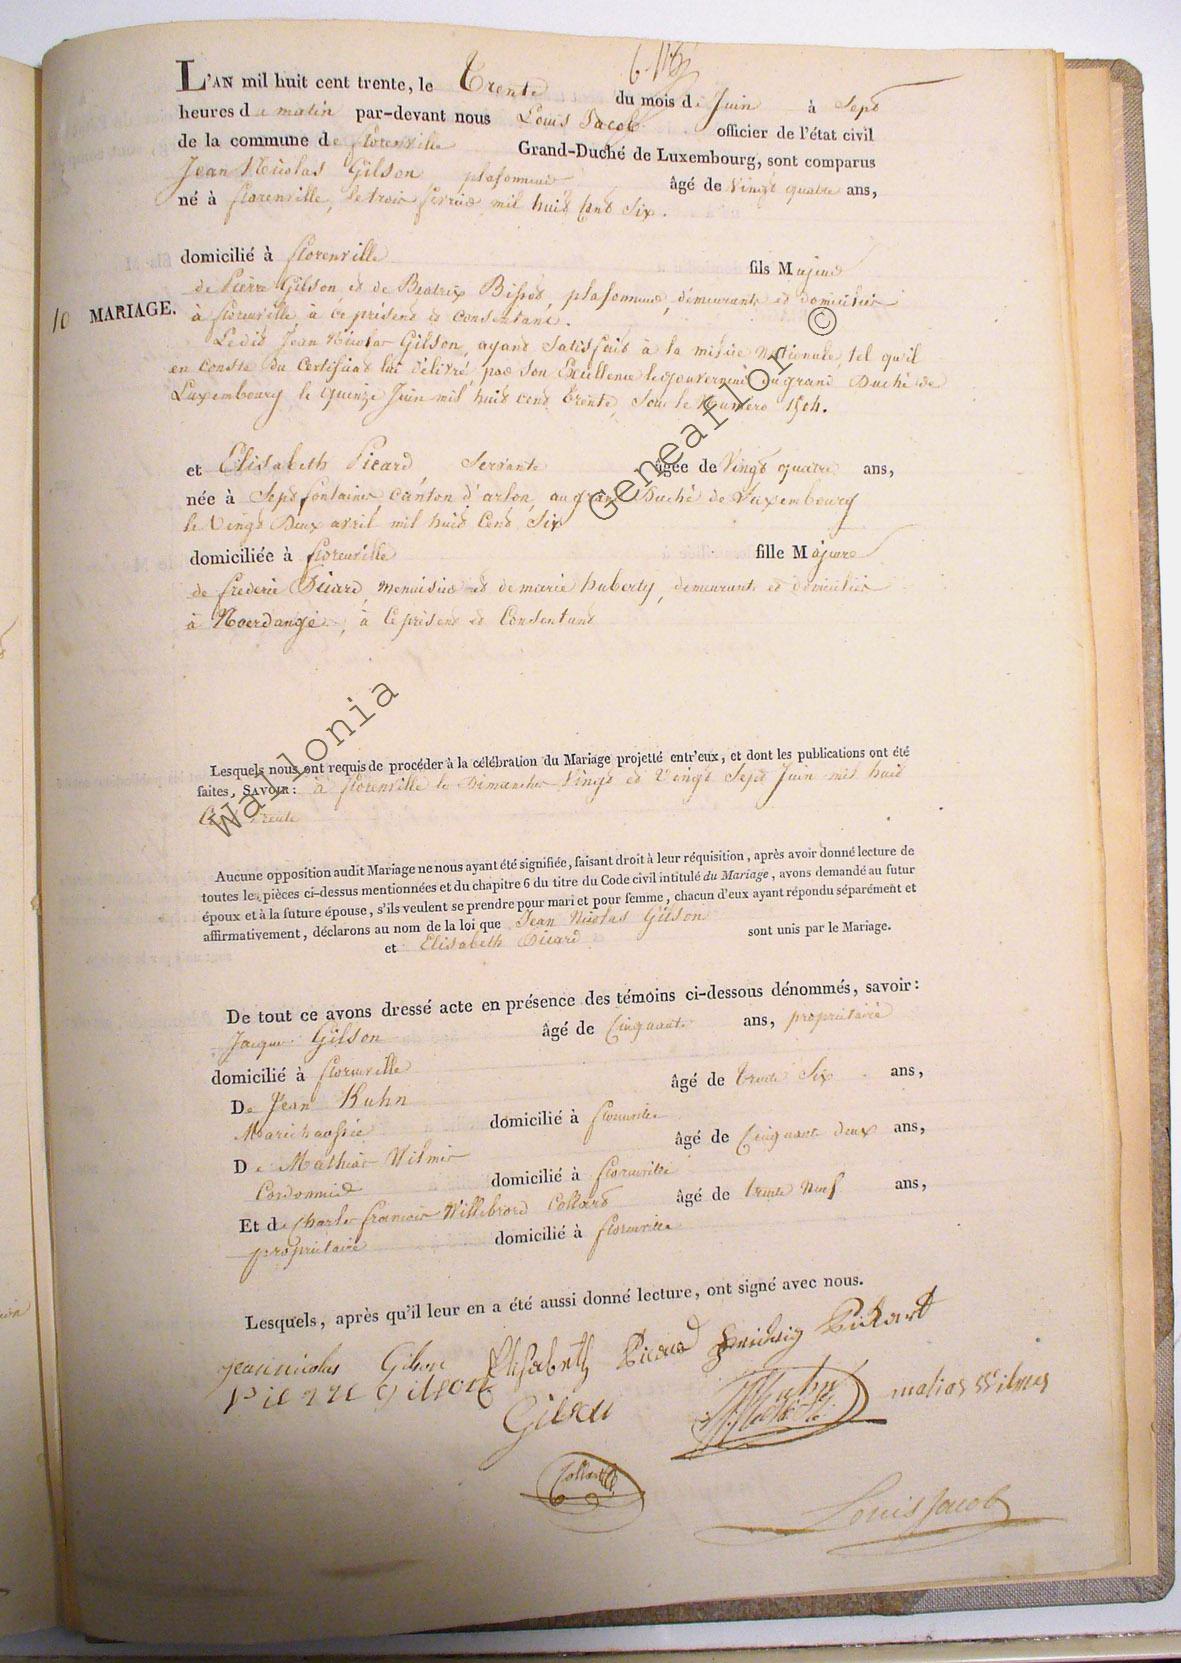 L'AN mil huit cent trente, le Trente du mois de Juin à Sept
heures du matin par-devant nous Louis Jacob officier de l'état civil
de la commune de florenville Grand-Duché de Luxembourg, sont comparus
Jean Nicolas Gilson plafonneur âgé de Vingt quatre ans,
né à florenville, le trois fevrier mil huit Cent Six.
domicilié à florenville fils Majeur
de Pierre Gilson et de Beatrix Bissot, plafonneur, demeurants et domiciliés
10 MARIAGE. à florenville, à ce présent et Consentant.
Ledit Jean Nicolas Gilson, ayant Satisfait à la milice Nationale, tel qu'il
en Conste du Certificat lui délivré par Son Excellence le gouverneur du grand Duché de
Luxembourg le quinze Juin mil huit cent trente, Sous le Numéro 1504.
et Elisabeth Picard Servante âgée de Vingt quatre ans,
née à Sept fontaines, Canton d'arlon, au grand Duché de Luxembourg
le Vingt Deux avril mil huit Cent Six
domiciliée à florenville fille Majeure
de frederic Picard, Menuisier et de marie huberty, demeurants et domiciliés
à Noerdange, à Ce présent et Consentant
Lesquels nous ont requis de procéder à la célébration du Mariage projetté entr'eux, et dont les publications ont été
faites, SAVOIR: à florenville les Dimanches Vingt et Vingt Sept Juin mil huit
Cent trente
Aucune opposition audit Mariage ne nous ayant été signifiée, faisant droit à leur réquisition, après avoir donné lecture de
toutes les pièces ci-dessus mentionnées et du chapitre 6 du titre du Code civil intitulé du Mariage, avons demandé au futur
époux et à la future épouse, s'ils veulent se prendre pour mari et pour femme, chacun d'eux ayant répondu séparément et
affirmativement, déclarons au nom de la loi que Jean Nicolas Gilson
et Elisabeth Picard sont unis par le Mariage.
De tout ce avons dressé acte en présence des témoins ci-dessous dénommés, savoir:
Jacques Gilson âgé de Cinquante ans, propriétaire
domicilié à florenville
De Jean Kuhn âgé de trente Six ans,
Marechaussée domicilié à florenville
De Mathias Wilmes âgé de Cinquante deux ans,
Cordonnier domicilié à florenville
Et de Charles francois Willebrord Collard âgé de trente Neuf ans,
propriétaire domicilié à florenville
Lesquels, après qu'il leur en a été aussi donné lecture, ont signé avec nous.
jean nicolas Gilson Elisabeth Picard Pickart
Pierre gilson Gilson Kuhn matias Wilmes
Collard
Louis Jacob
Wallonia Geneaflor ©